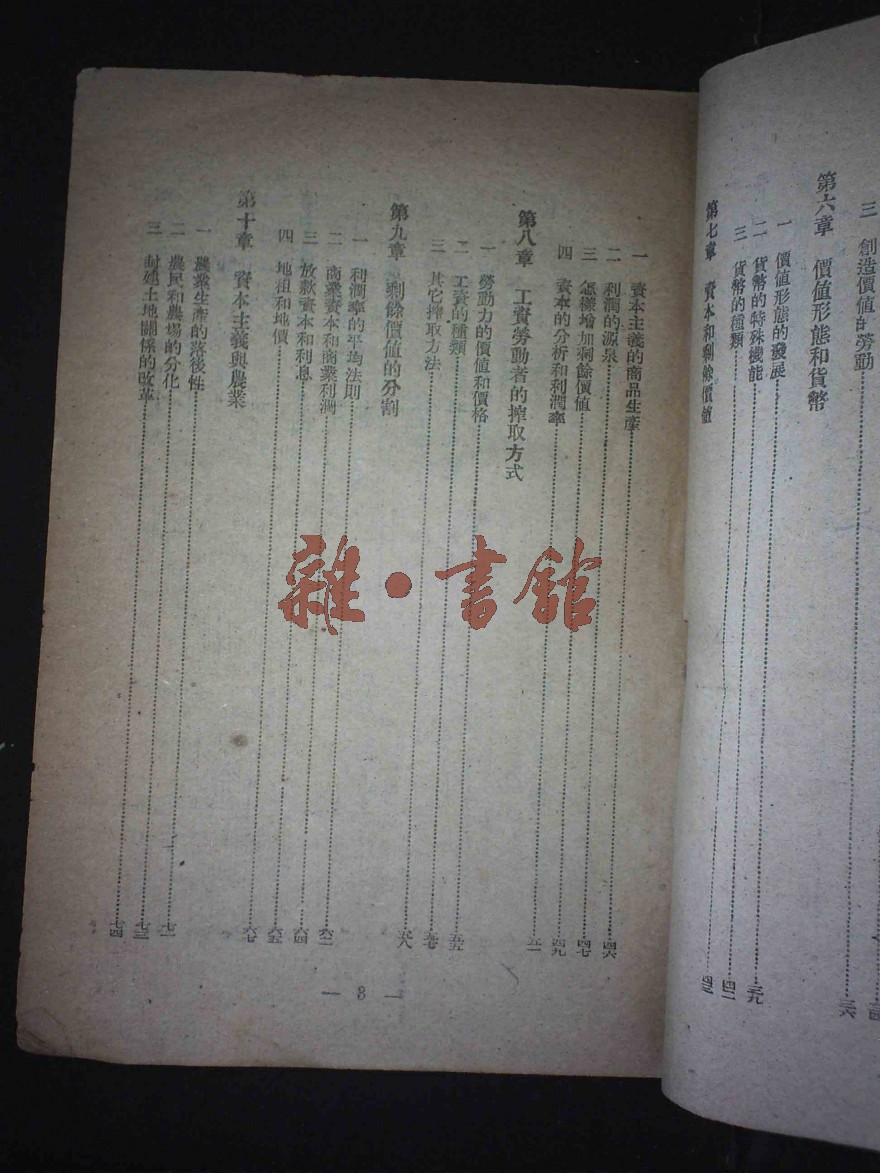 三 創造價值的勞動 三六
第六章 價值形態和貨幣
一 價值形態的發展 三九
二 貨幣的特殊機能 四二
三 貨幣的種類 四三
第七章 資本和剩餘價值
一 資本主義的商品生產 四六
二 利潤的源泉 四七
三 怎樣增加剩餘價值 四九
四 資本的分析和利潤率 五一
第八章 工資勞動者的搾取方式
一 勞動力的價值和價格 五五
二 工資的種類 五七
三 其它搾取方法 五八
第九章 剩餘價值的分割
一 利潤率的平均法則 六二
二 商業資本和商業利潤 六四
三 放款資本和利息 六五
四 地租和地價 六七
第十章 資本主義與農業
一 農業生產的落後性 七一
二 農民和農場的分化 七三
三 封建土地關係的改革 七四
— 3 —
雜·書館